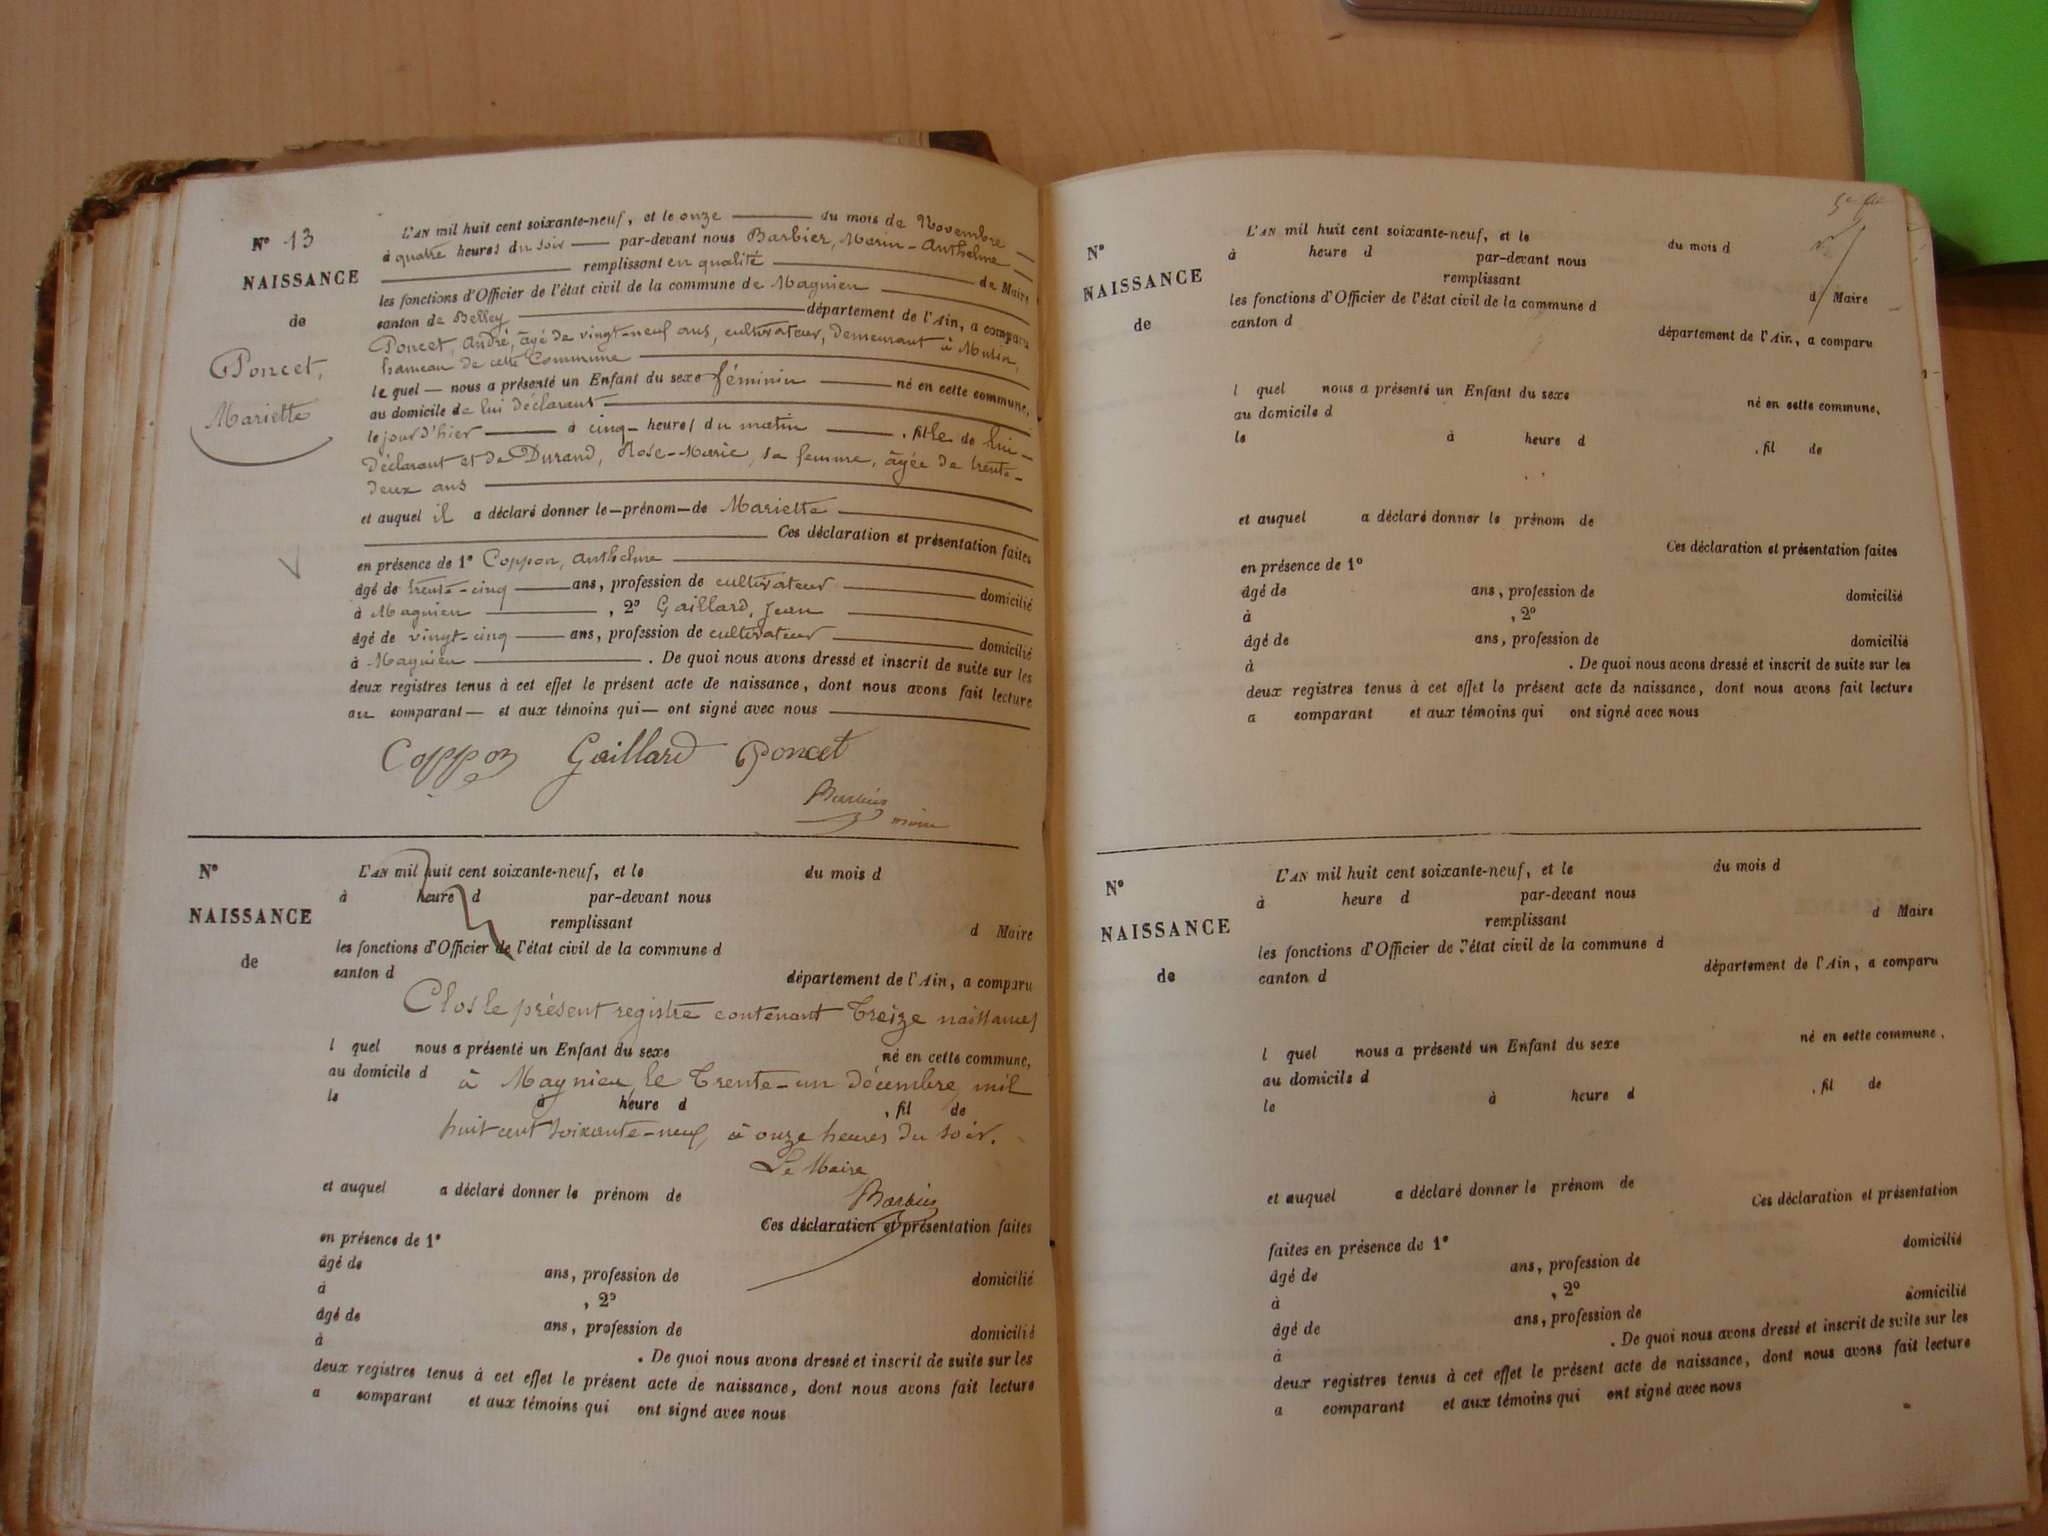 N° 13
NAISSANCE
de
Poncet,
Mariette
L'AN mil huit cent soixante-neuf, et le onze du mois de Novembre
à quatre heures du soir par-devant nous Barbier, Marin-Anthelme
remplissant en qualité de Maire
les fonctions d'Officier de l'état civil de la commune de Magnieu
canton de Belley département de l'Ain, a comparu
Poncet, André, âgé de vingt-neuf ans, cultivateur, demeurant à
hameau de cette Commune
le quel — nous a présenté un Enfant du sexe féminin né en cette commune,
au domicile de lui déclarant
le jour d'hier à cinq heures du matin , fille de lui
déclarant et de Durand, Rose-Marie, sa femme, âgée de trente-
deux ans
et auquel il a déclaré donner le — prénom — de Mariette
Ces déclaration et présentation faites
en présence de 1° Coppon, Anthelme
âgé de trente-cinq ans, profession de cultivateur domicilié
à Magnieu , 2° Gaillard, Jean
âgé de vingt-cinq ans, profession de cultivateur domicilié
à Magnieu . De quoi nous avons dressé et inscrit de suite sur les
deux registres tenus à cet effet le présent acte de naissance, dont nous avons fait lecture
au comparant — et aux témoins qui — ont signé avec nous
Coppon Gaillard Poncet
Barbier
maire
N°
NAISSANCE
de
L'AN mil huit cent soixante-neuf, et le du mois d
à heure d par-devant nous
remplissant d Maire
les fonctions d'Officier de l'état civil de la commune d
canton d département de l'Ain, a comparu
Clos le présent registre contenant treize naissances
l quel nous a présenté un Enfant du sexe né en cette commune,
au domicile d
à Magnieu, le trente-un décembre mil
le à heure d , fil de
huit cent soixante-neuf, à onze heures du soir.
Le Maire
et auquel a déclaré donner le prénom de
Barbier
Ces déclaration et présentation faites
en présence de 1°
âgé de ans, profession de domicilié
à , 2°
âgé de ans, profession de domicilié
à . De quoi nous avons dressé et inscrit de suite sur les
deux registres tenus à cet effet le présent acte de naissance, dont nous avons fait lecture
a comparant et aux témoins qui ont signé avec nous
N°
NAISSANCE
de
L'AN mil huit cent soixante-neuf, et le du mois d
à heure d par-devant nous
remplissant d Maire
les fonctions d'Officier de l'état civil de la commune d
canton d département de l'Ain, a comparu
l quel nous a présenté un Enfant du sexe né en cette commune,
au domicile d
le à heure d , fil de
et auquel a déclaré donner le prénom de
Ces déclaration et présentation faites
en présence de 1°
âgé de ans, profession de domicilié
à , 2°
âgé de ans, profession de domicilié
à . De quoi nous avons dressé et inscrit de suite sur les
deux registres tenus à cet effet le présent acte de naissance, dont nous avons fait lecture
a comparant et aux témoins qui ont signé avec nous
N°
NAISSANCE
de
L'AN mil huit cent soixante-neuf, et le du mois d
à heure d par-devant nous
remplissant d Maire
les fonctions d'Officier de l'état civil de la commune d
canton d département de l'Ain, a comparu
l quel nous a présenté un Enfant du sexe né en cette commune,
au domicile d
le à heure d , fil de
et auquel a déclaré donner le prénom de
Ces déclaration et présentation
faites en présence de 1° domicilié
âgé de ans, profession de
à , 2° domicilié
âgé de ans, profession de
à . De quoi nous avons dressé et inscrit de suite sur les
deux registres tenus à cet effet le présent acte de naissance, dont nous avons fait lecture
a comparant et aux témoins qui ont signé avec nous